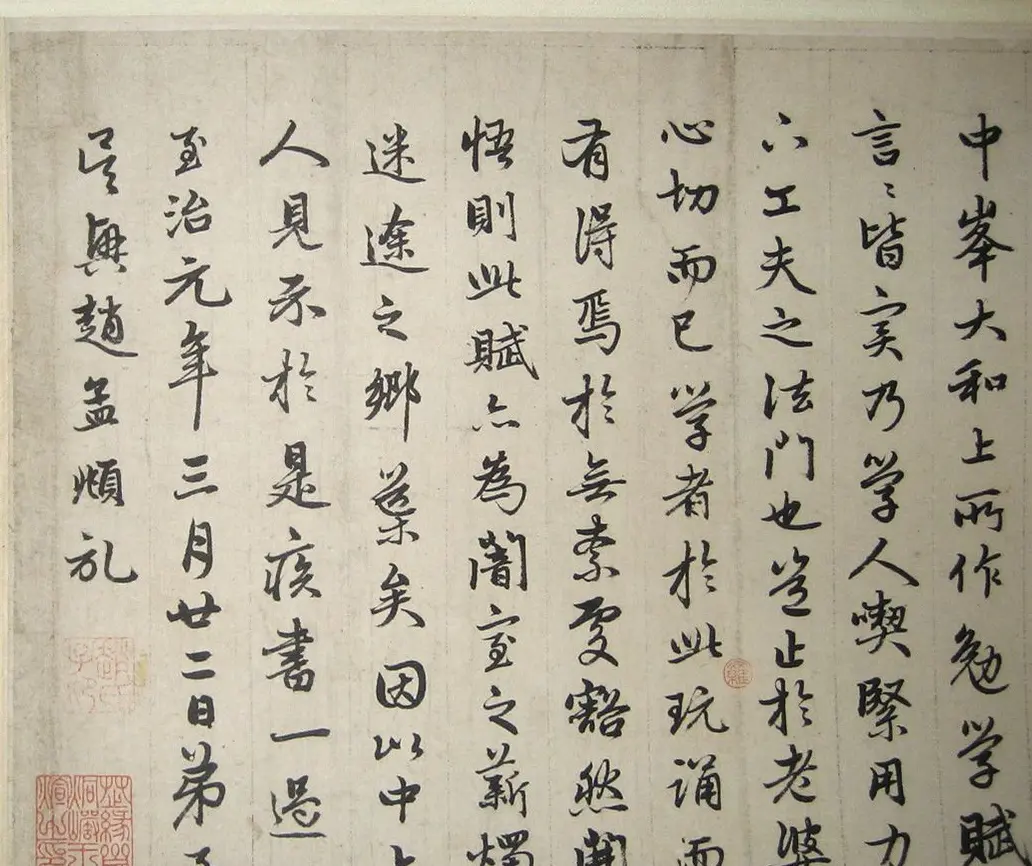 中峯大和上所作勉学賦
言〻皆実乃学人喫緊用力
下工夫之法門也豈止於老婆
心切而已学者於此玩誦而
有得焉於無索處豁然開
悟則此賦亦為闇室之薪燭
迷途之鄉矣因以中
人見示於是疾書一過
至治元年三月廿二日弟
吳興趙孟頫礼